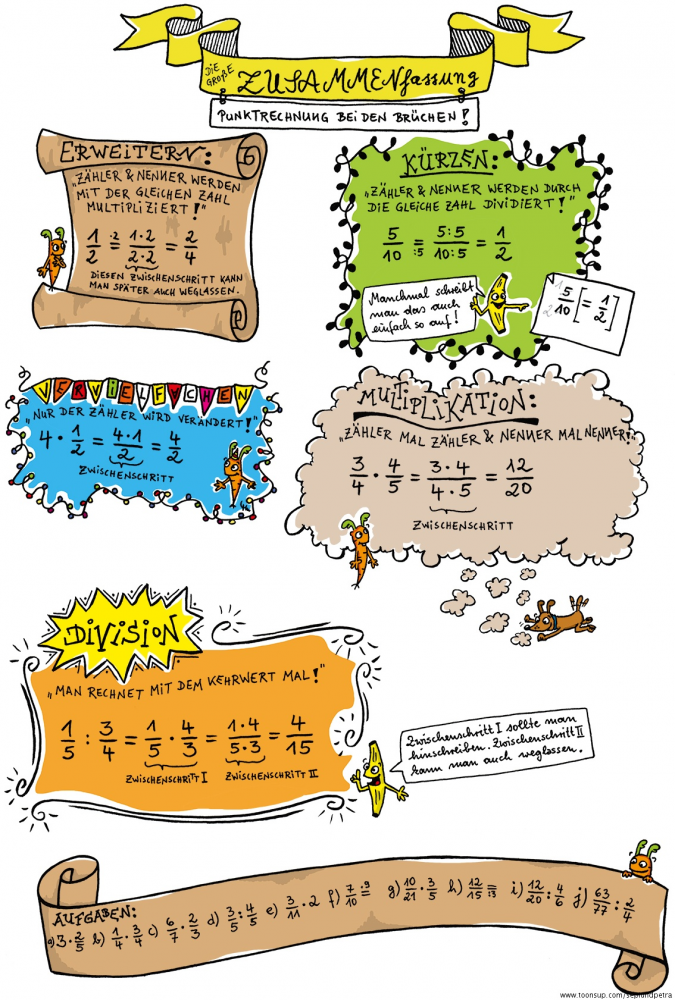 DIE
GROßE
ZUSAMMENfassung
PUNKTRECHNUNG BEI DEN BRÜCHEN!
ERWEITERN:
„ZÄHLER & NENNER WERDEN
MIT DER GLEICHEN ZAHL
MULTIPLIZIERT!"
1/2 =·2 1·2/2·2 = 2/4
DIESEN ZWISCHENSCHRITT KANN
MAN SPÄTER AUCH WEGLASSEN.
KÜRZEN:
„ZÄHLER & NENNER WERDEN DURCH
DIE GLEICHE ZAHL DIVIDIERT!"
5/10 =:5 5:5/10:5 = 1/2
Manchmal schreibt
man das auch
einfach so auf!
1 5/2 10 [= 1/2]
VERViELFACHEN
„NUR DER ZÄHLER WIRD VERÄNDERT!"
4 · 1/2 = 4·1/2 = 4/2
ZWISCHENSCHRITT
MULTIPLIKATION:
„ZÄHLER MAL ZÄHLER & NENNER MAL NENNER!"
3/4 · 4/5 = 3·4/4·5 = 12/20
ZWISCHENSCHRITT
DiViSiON
„MAN RECHNET MIT DEM KEHRWERT MAL!"
1/5 : 3/4 = 1/5 · 4/3 = 1·4/5·3 = 4/15
ZWISCHENSCHRITT I ZWISCHENSCHRITT II
Zwischenschritt I sollte man
hinschreiben. Zwischenschritt II
kann man auch weglassen.
AUFGABEN:
a) 3·2/5 b) 1/4·3/4 c) 6/7·2/3 d) 3/5:4/5 e) 3/11·2 f) 7/10 =·9 g) 10/21·3/5 h) 12/15 =:3 i) 12/20:4/6 j) 63/77:2/4
www.toonsup.com/sepiundpetra